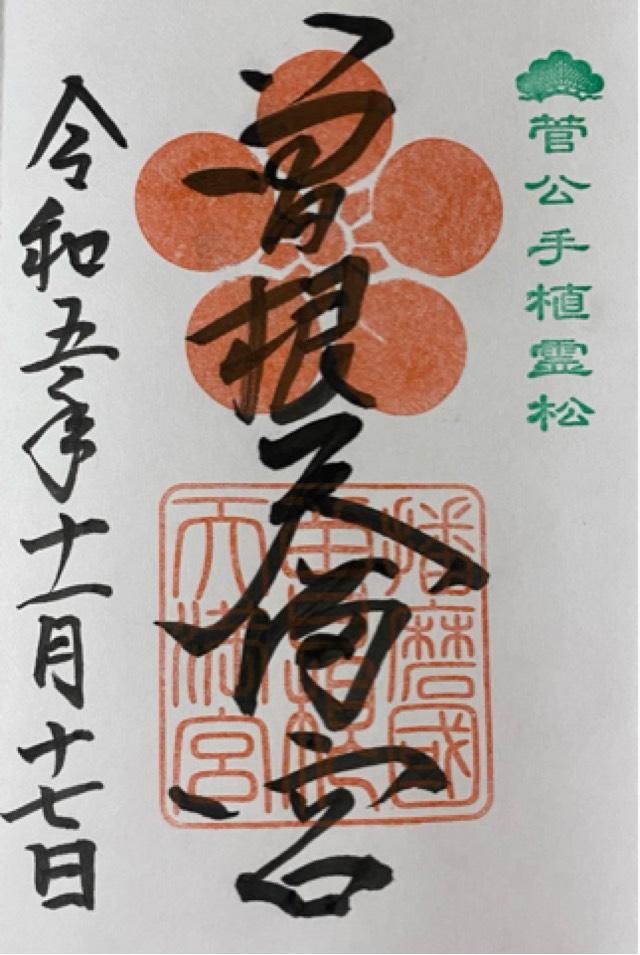 菅公手植霊松
曽根天満宮
播磨國
天満宮
令和五年十一月十七日